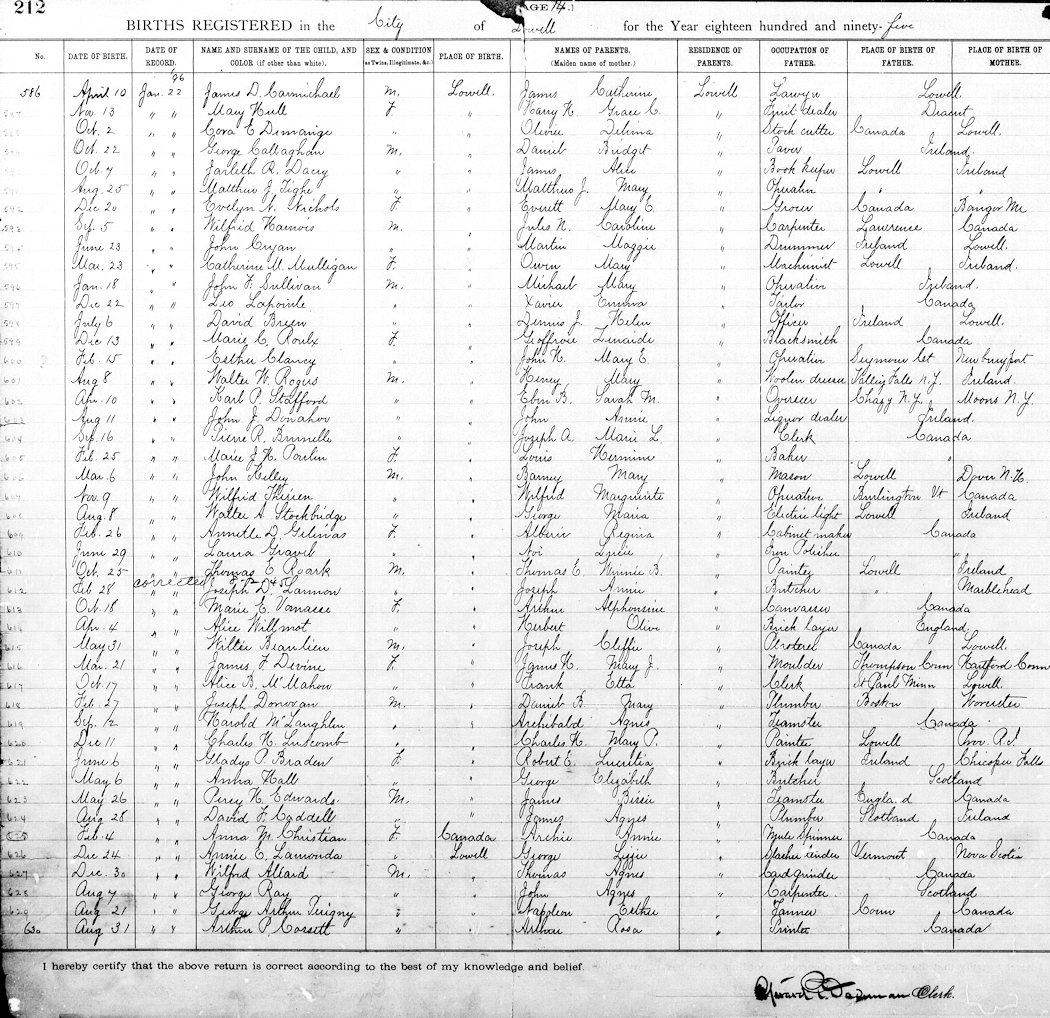 212
PAGE 14.]
BIRTHS REGISTERED in the City of Lowell for the Year eighteen hundred and ninety-five
No. DATE OF BIRTH. DATE OF RECORD. NAME AND SURNAME OF THE CHILD, AND COLOR (if other than white). SEX & CONDITION as Twins, Illegitimate, &c.) PLACE OF BIRTH. NAMES OF PARENTS. (Maiden name of mother.) RESIDENCE OF PARENTS. OCCUPATION OF FATHER. PLACE OF BIRTH OF FATHER. PLACE OF BIRTH OF MOTHER.
'96
586 April 10 Jan. 22 James D. Carmichael M. Lowell. James Catherine Lowell Lawyer Lowell.
587 Nov 13 " " Mary Hull F. " Harry H. Grace C. " Fruit dealer Dracut
Oct. 2 " " Cora E Demange " " Olivier Delima " Stock cutter Canada Lowell.
Oct. 22 " " George Callaghan M. " Daniel Bridget " Paver Ireland.
Oct. 7 " " Jarleth R. Dacey " " James Alice " Book keeper Lowell Ireland
Aug. 25 " " Matthew J. Tighe " " Matthew J. Mary " Operative " "
592 Dec 20 " " Evelyn N. Nichols F. " Everett Mary E. " Grocer Canada Bangor Me
593 Sep. 5 " " Wilfrid M. " Jules N. Caroline " Carpenter Lawrence Canada
594 June 23 " " John Cryan " " Martin Maggie " Drummer Ireland Lowell.
595 Mar. 23 " " Catherine M. Mulligan F. " Owen Mary " Machinist Lowell Ireland.
596 Jan. 18 " " John F. Sullivan M. " Michael Mary " Operative Ireland.
597 Dec 22 " " Leo Lapointe " " Xavier Emma " Tailor Canada
598 July 6 " " David Breen " " Dennis J. Helen " Officer Ireland Lowell.
599 Dec 13 " " Marie C. Roulx F. " Geoffroie " Blacksmith Canada
600 Feb. 15 " " Esther Clancy " " John H. Mary E " Operative Seymour Newburyport
601 Aug 8 " " Walter W. Rogers M. " Henry Mary " Woolen dresser Valley Falls N.Y. Ireland.
602 Apr. 10 " " Karl P. Stafford " " Eben B. Sarah M. " Overseer Chazy N.Y. Moors N.Y.
603 Aug 11 " " John J. Donahoe " " John Annie " Liquor dealer Ireland.
604 Sep. 16 " " Pierre R. Brunelle " " Joseph A. Marie L. " Clerk Canada
605 Feb. 25 " " Marie J. H. Poulin F. " Louis Hermine " Baker "
606 Mar. 6 " " John Kelley M. " Barney Mary " Mason Lowell Dover N.H.
607 Nov. 9 " " Wilfrid Therien " " Wilfrid Marguirite " Operative Burlington Vt Canada
608 Aug. 8 " " Walter A Stockbridge " " George Maria " Electric light Lowell Ireland
609 Feb. 26 " " Annette D. Gelinas F. " Alberic Regina " Cabinet maker Canada
610 June 29 " " Laura Gravel " " Noi Lucie " Iron Polisher "
611 Oct. 25 " " Thomas E. Roark M. " Thomas E. Winnie B. " Painter Lowell Ireland
corrected
612 Feb 28 " " Joseph D. Lannon " " Joseph Annie " Butcher " Marblehead
613 Oct. 18 " " Marie E. Vanasse F. " Arthur Alphonsine " Canvasser Canada
614 Apr. 4 " " Alice Willmot " " Herbert Olive " Brick layer England.
615 May 31 " " Wilter Beaulieu M. " Joseph " Plasterer Canada Lowell.
616 Mar. 21 " " James F. Devine F. " James H. Mary J. " Moulder Thompson Conn Hartford Conn
617 Oct. 17 " " Alice B. McMahon " " Frank Etta " Clerk St Paul Minn Lowell.
618 Feb. 27 " " Joseph Donovan M. " Daniel B. Mary " Plumber Boston Worcester
619 Sep. 12 " " Harold McLaughlen " " Archibald Agnes " Teamster Canada
620 Dec 11 " " Charles H. Luscomb " " Charles H. Mary P. " Painter Lowell Prov. R.I.
621 June 6 " " Gladys P. Braden F. " Robert E. Lucretia " Brick layer Ireland Chicopee Falls
622 May 6 " " Anna Hall " " George Elizabeth " Butcher Scotland
623 May 26 " " Percy H. Edwards. M. " James " Teamster England Canada
624 Aug 25 " " David F. Caddell " " James Agnes " Plumber Scotland Ireland
625 Feb. 4 " " Anna M. Christian F. Canada Archie Annie " Mule Spinner Canada
626 Dec 24 " " Annie E. Lamonda " Lowell George Lizzie " Slasher tender Vermont Nova Scotia
627 Dec. 30 " " Wilfred Allard M. " Thomas Agnes " Card grinder Canada
628 Aug 7 " " George Ray " " John Agnes " Carpenter Scotland
629 Aug 21 " " George Arthur Terigny " " Napoleon Esther " Tanner Conn Canada
630 Aug 31 " " Arthur P. Cossett " " Arthur Rosa " Printer Canada
I hereby certify that the above return is correct according to the best of my knowledge and belief.
Clerk.